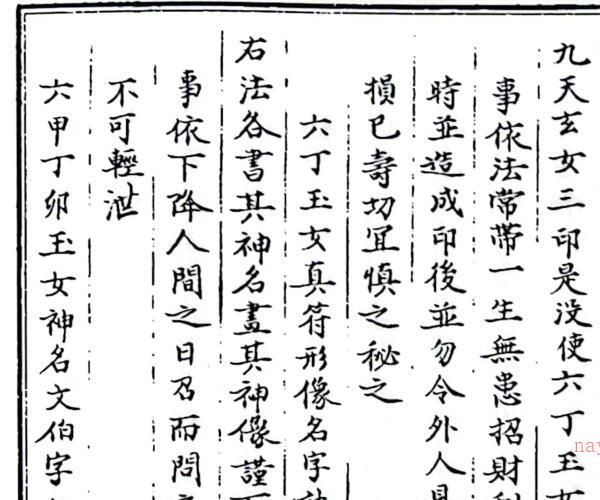 九天玄女三印是没使六丁玉女
事依法常帶一生無患招財利
時並造成印後並勿令外人見
損已壽切冝慎之秘之
六丁玉女真符形像名字
右法各書其神名畫其神像謹
事依下降人間之日乃而問
不可輕泄
六甲丁卯玉女神名文伯字
nay